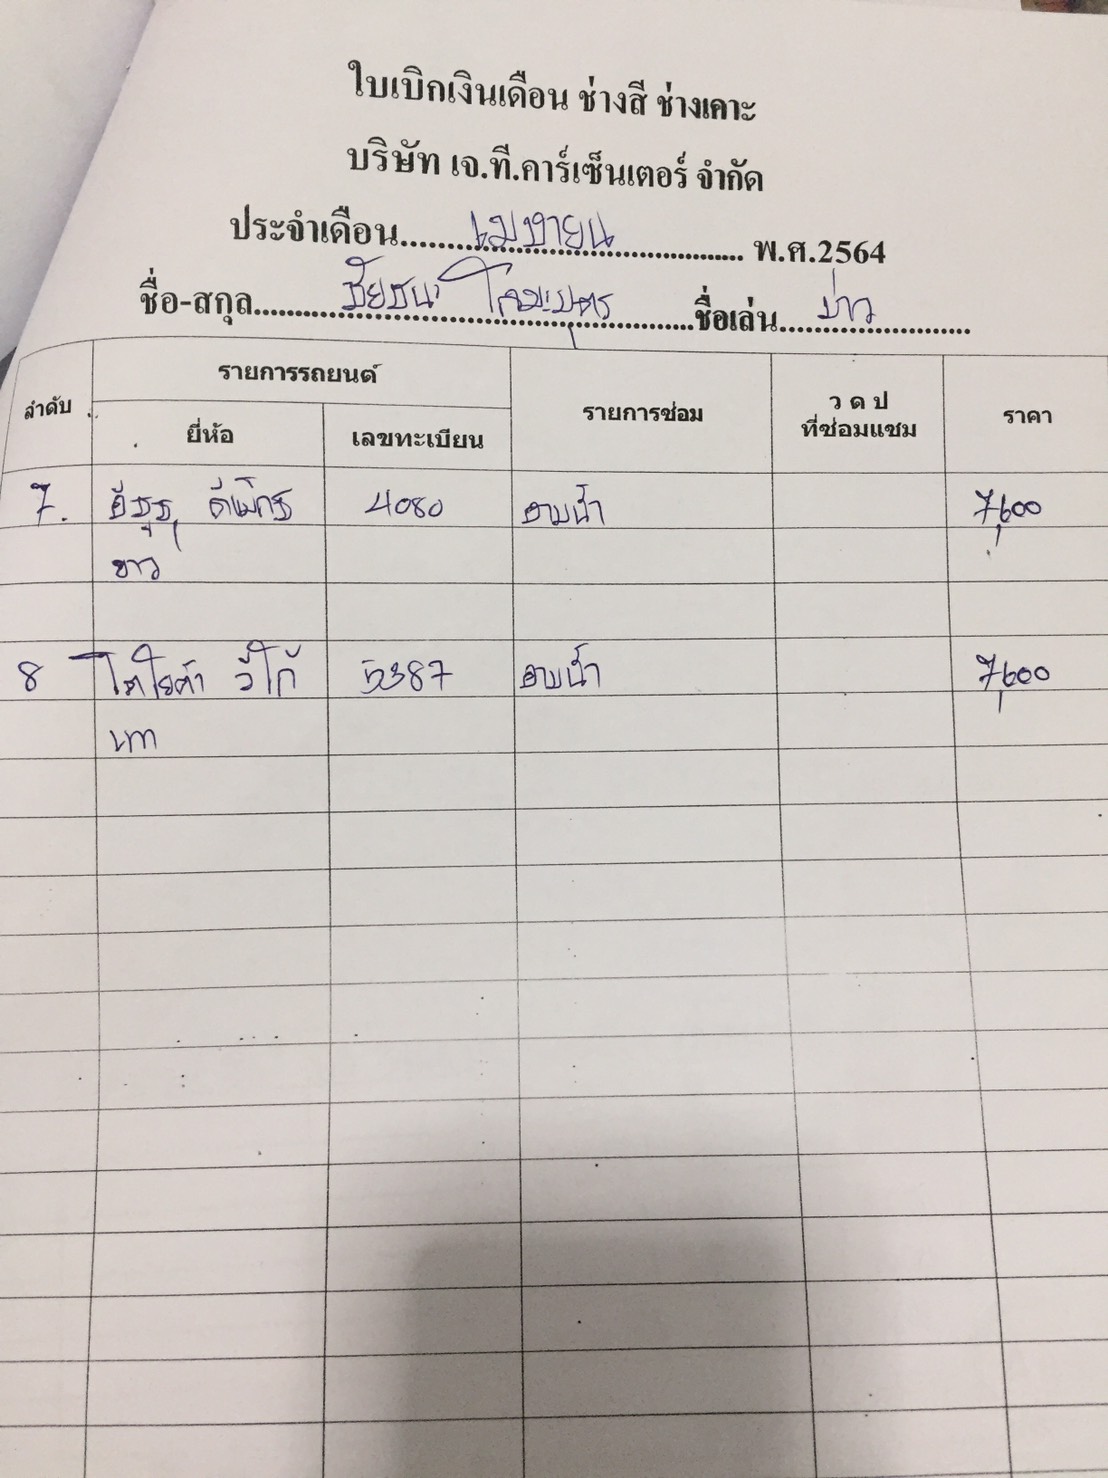 ใบเบิกเงินเดือน ช่างสี ช่างเคาะ
บริษัท เจ.ที.คาร์เซ็นเตอร์ จำกัด
ประจำเดือน เมษายน พ.ศ.2564
ชื่อ-สกุล ชัยชนะ ชื่อเล่น
ลำดับ รายการรถยนต์ รายการซ่อม ว ด ป ที่ซ่อมแซม ราคา
ยี่ห้อ เลขทะเบียน
7. อีซูซุ ดีแม็กซ์ 4080 อาบน้ำ 7,600
ขาว
8 โตโยต้า วีโก้ 5387 อาบน้ำ 7,600
เทา